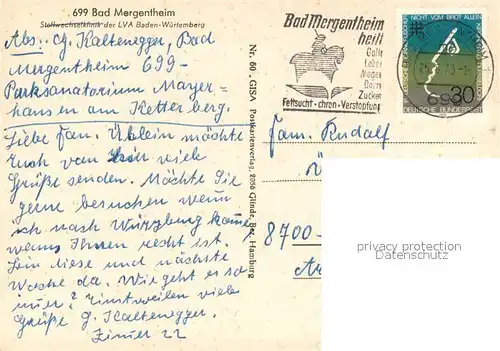 699 Bad Mergentheim
Stoffwechselklinik der LVA Baden-Württemberg
Abs.: G. Kaltenegger, Bad
Mergentheim 699-
Parksanatorium Mayer-
hausen am Ketterberg.
Liebe Fam. Üblein möchte
Euch von hier viele
Grüße senden. Möchte Sie
gerne besuchen wenn
ich nach Würzburg komme,
wenns Ihnen recht ist.
bin diese und nächste
Woche da. Wie geht es so
immer? Einstweilen viele
Grüße G. Kaltenegger.
Zimmer 22
Nr. 60 „GISA" Postkartenverlag, 2056 Glinde, Bez. Hamburg
Bad Mergentheim
heilt
Galle
Leber
Magen
Darm
Zucker
Fettsucht · chron · Verstopfung
NICHT VOM BROT ALLEIN
30
DEUTSCHE BUNDESPOST
699
Fam. Rudolf
8700-
privacy protection
watermark